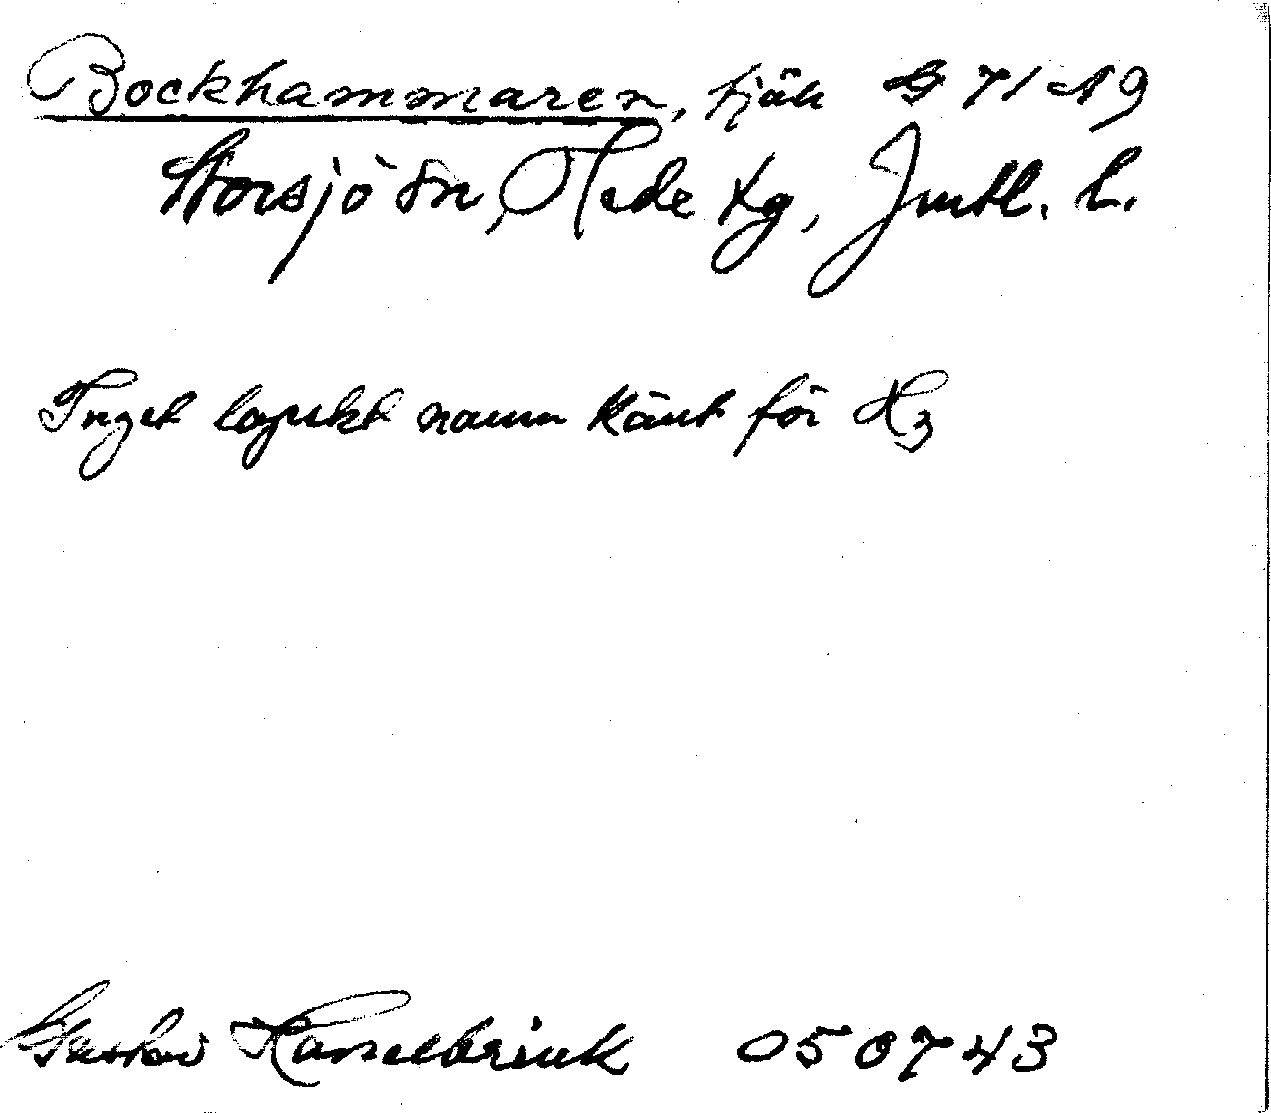 Bockhammaren, fjäll G 71 A 9
Storsjö sn, Hede tg, Jmtl. l.
Inget lapskt namn känt för H3
Gustav Hasselbrink 050743